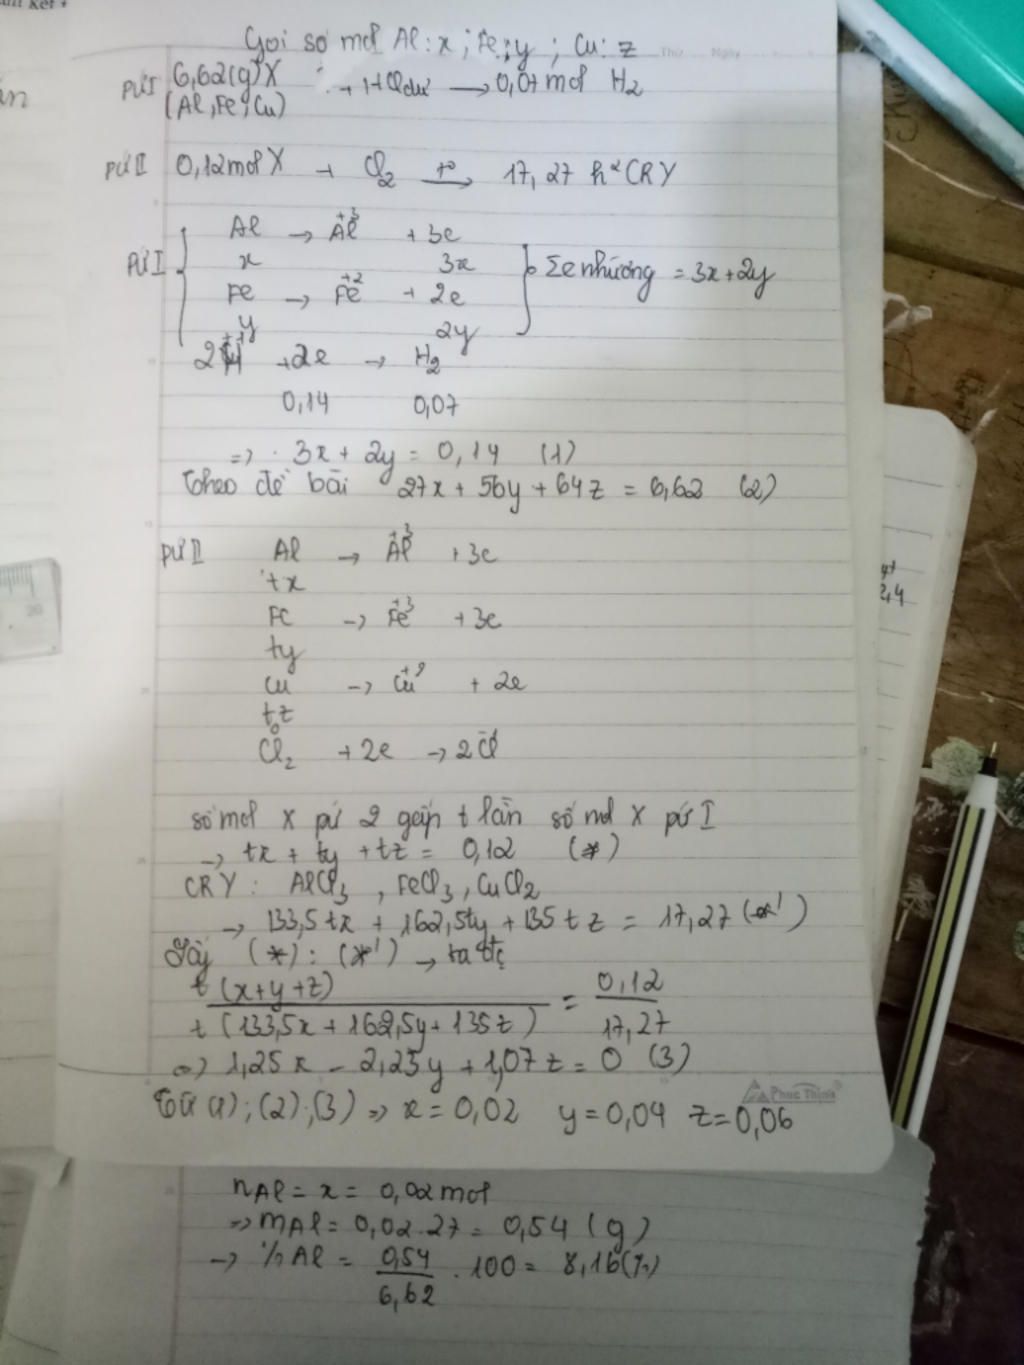 Gọi số mol Al: x ; Fe: y ; Cu: z
PƯI 6,62(g) X + HCl dư → 0,07 mol H2
(Al, Fe, Cu)
PƯ II 0,12 mol X + Cl2 t° → 17,27 h² CR Y
Al → Al+3 + 3e
x 3x
PƯ I Σe nhường = 3x + 2y
Fe → Fe+2 + 2e
y 2y
2H+1 + 2e → H2
0,14 0,07
=> 3x + 2y = 0,14 (1)
Theo đề bài 27x + 56y + 64z = 6,62 (2)
PƯ II Al → Al+3 + 3e
tx
Fe → Fe+3 + 3e
ty
Cu → Cu+2 + 2e
tz
Cl2 + 2e → 2Cl-
số mol X pứ 2 gấp t lần số mol X pứ I
→ tx + ty + tz = 0,12 (*)
CR Y: AlCl3, FeCl3, CuCl2
→ 133,5tx + 162,5ty + 135tz = 17,27 (*')
Lấy (*) : (*') → ta đc
t(x+y+z) / t(133,5x + 162,5y + 135z) = 0,12 / 17,27
=> 1,25x - 2,23y + 1,07z = 0 (3)
Từ (1); (2); (3) => x = 0,02 y = 0,04 z = 0,06
Phuc Thinh
nAl = x = 0,02 mol
=> mAl = 0,02.27 = 0,54 (g)
→ % Al = 0,54 / 6,62 . 100 = 8,16(%)
2,4